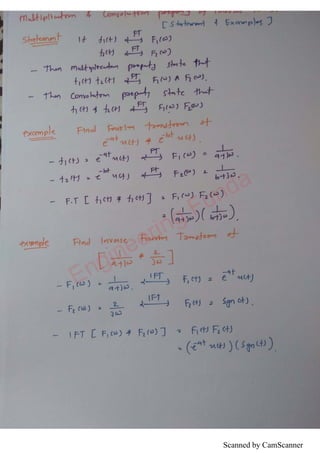 Multiplication & Convolution property of
[Statement & Examples]
Statement If f₁(t) ⟷FT F₁(ω)
f₂(t) ⟷FT F₂(ω)
- Then multiplication property state that
f₁(t) f₂(t) ⟷FT F₁(ω) * F₂(ω).
- Then Convolution property state that
f₁(t) * f₂(t) ⟷FT F₁(ω) F₂(ω)
example Find Fourier transform of
e^-at u(t) * e^-bt u(t).
- f₁(t) = e^-at u(t) ⟷FT F₁(ω) = 1/(a+jω).
- f₂(t) = e^-bt u(t) ⟷FT F₂(ω) = 1/(b+jω).
- F.T [ f₁(t) * f₂(t) ] = F₁(ω) F₂(ω)
= (1/(a+jω)) (1/(b+jω)).
example Find Inverse Fourier Transform of
[ 1/(a+jω) * 2/jω ]
- F₁(ω) = 1/(a+jω) ⟷IFT F₁(t) = e^-at u(t)
- F₂(ω) = 2/jω ⟷IFT F₂(t) = Sgn(t).
- IFT [ F₁(ω) * F₂(ω) ] = F₁(t) F₂(t)
= (e^-at u(t)) (Sgn(t)).
Engineering Funda
Scanned by CamScanner